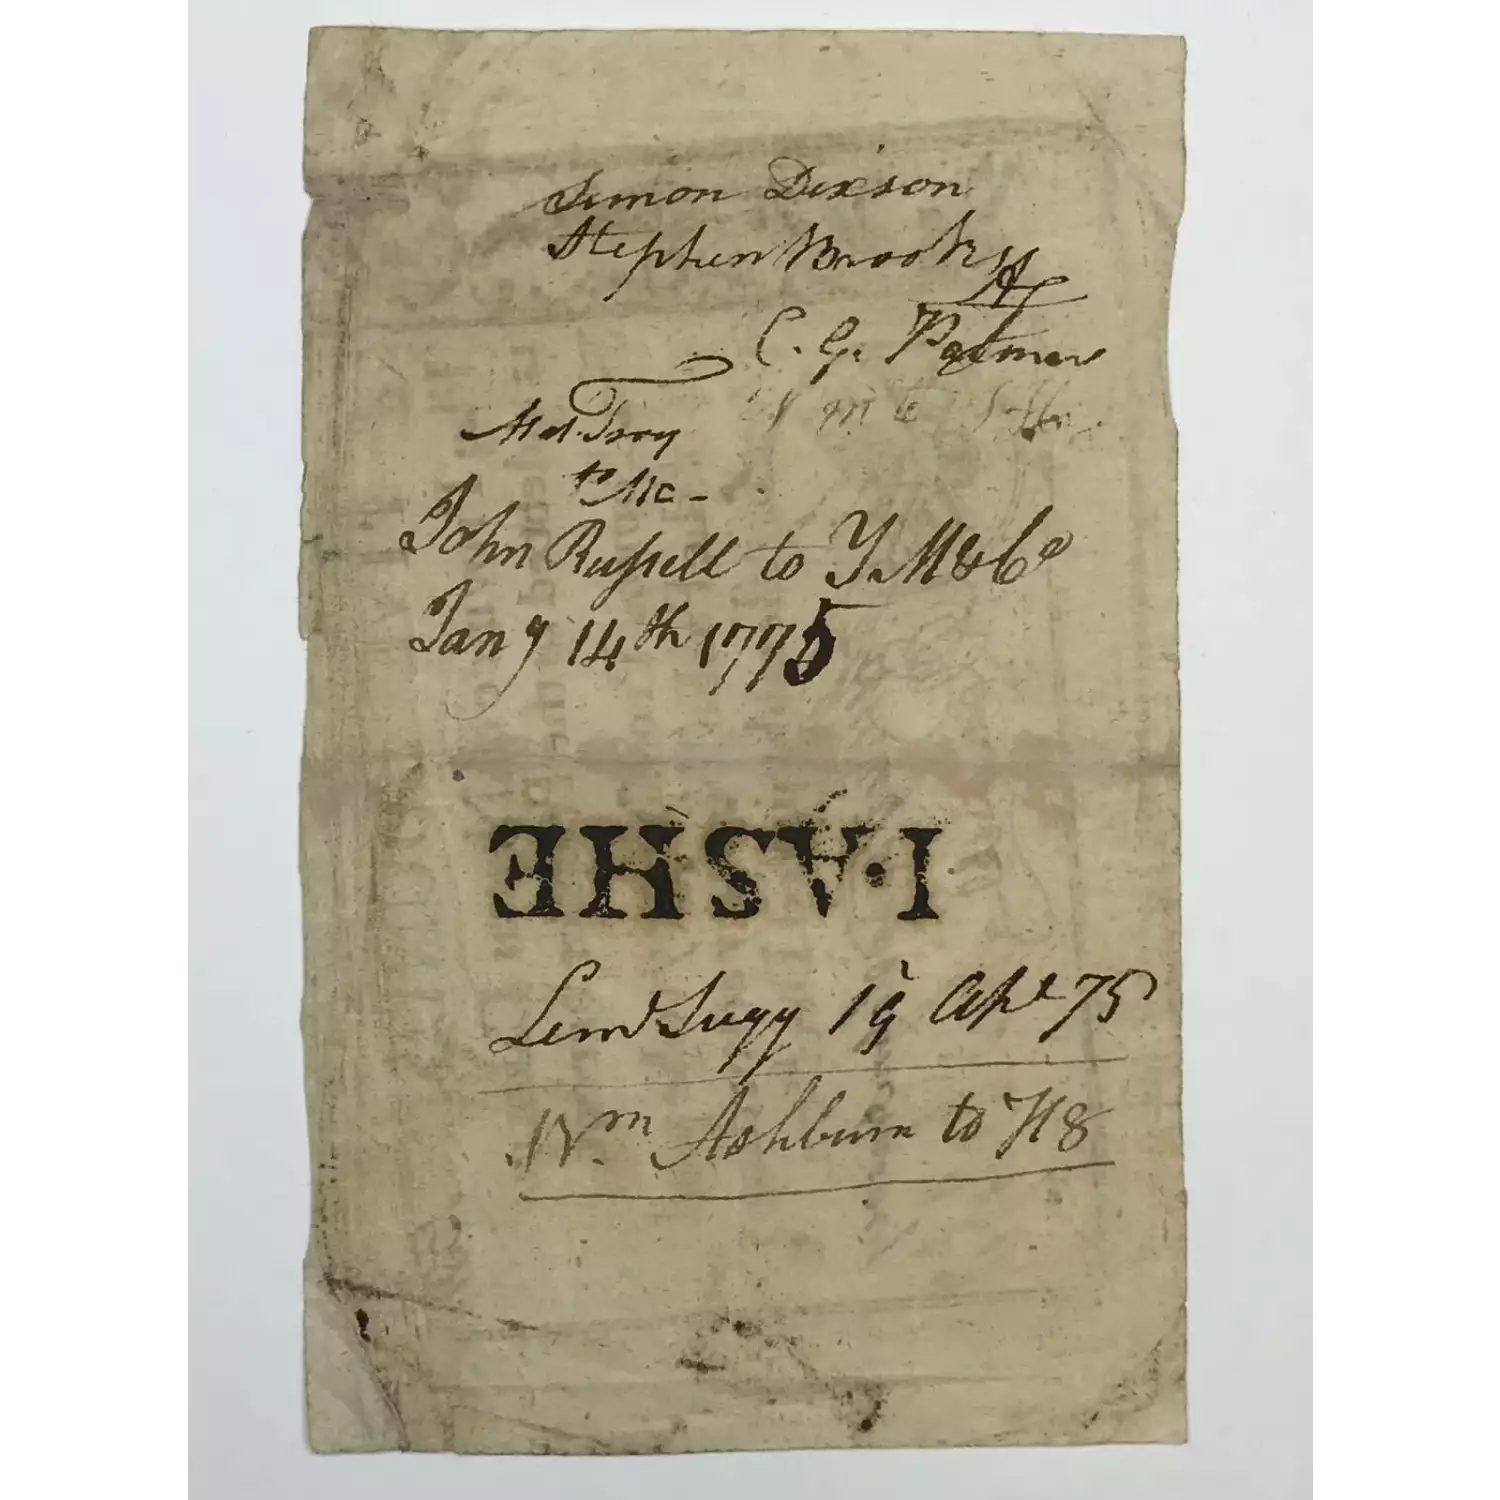 Simon Dixson
Stephen Brooks
C. G. Palmer
John Russell to Y. M & Co
Jany 14th 1775
I·ASHE
Lemd Sugg 19 Apl 75
Wm Ashburn to H8